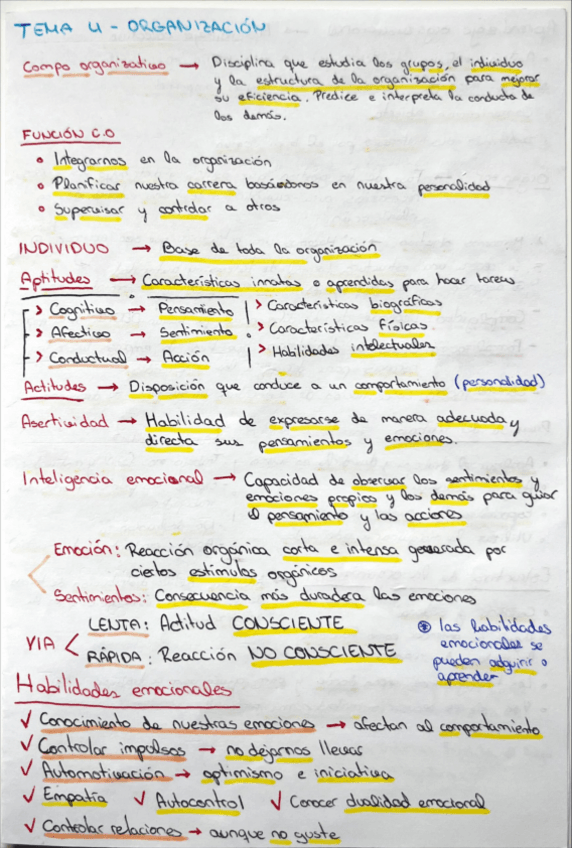 TEMA 4 - ORGANIZACIÓN
Compo organizativo → Disciplina que estudia los grupos, el individuo
y la estructura de la organización para mejorar
su eficiencia. Predice e interpreta la conducta de
los demás.
FUNCIÓN C.O
• Integrarnos en la organización
• Planificar nuestra carrera basándonos en nuestra personalidad
• Supervisar y controlar a otros
INDIVIDUO → Base de toda la organización
Aptitudes → Características innatas o aprendidas para hacer tareas
> Cognitivo → Pensamiento > Características biográficas
> Afectivo → Sentimiento > Características físicas.
> Conductual → Acción > Habilidades intelectuales
Actitudes → Disposición que conduce a un comportamiento (personalidad)
Asertividad → Habilidad de expresarse de manera adecuada y
directa sus pensamientos y emociones.
Inteligencia emocional → Capacidad de observar los sentimientos y
emociones propios y los demás para guiar
el pensamiento y las acciones
Emoción: Reacción orgánica corta e intensa generada por
ciertos estímulos orgánicos
Sentimientos: Consecuencia más duradera las emociones
VIA < LENTA: Actitud CONSCIENTE
RÁPIDA: Reacción NO CONSCIENTE
⊛ las habilidades
emocionales se
pueden adquirir o
aprender
Habilidades emocionales
✓ Conocimiento de nuestras emociones → afectan al comportamiento
✓ Controlar impulsos → no dejarnos llevar
✓ Automotivación → optimismo e iniciativa
✓ Empatía ✓ Autocontrol ✓ Conocer dualidad emocional
✓ Controlar relaciones → aunque no guste